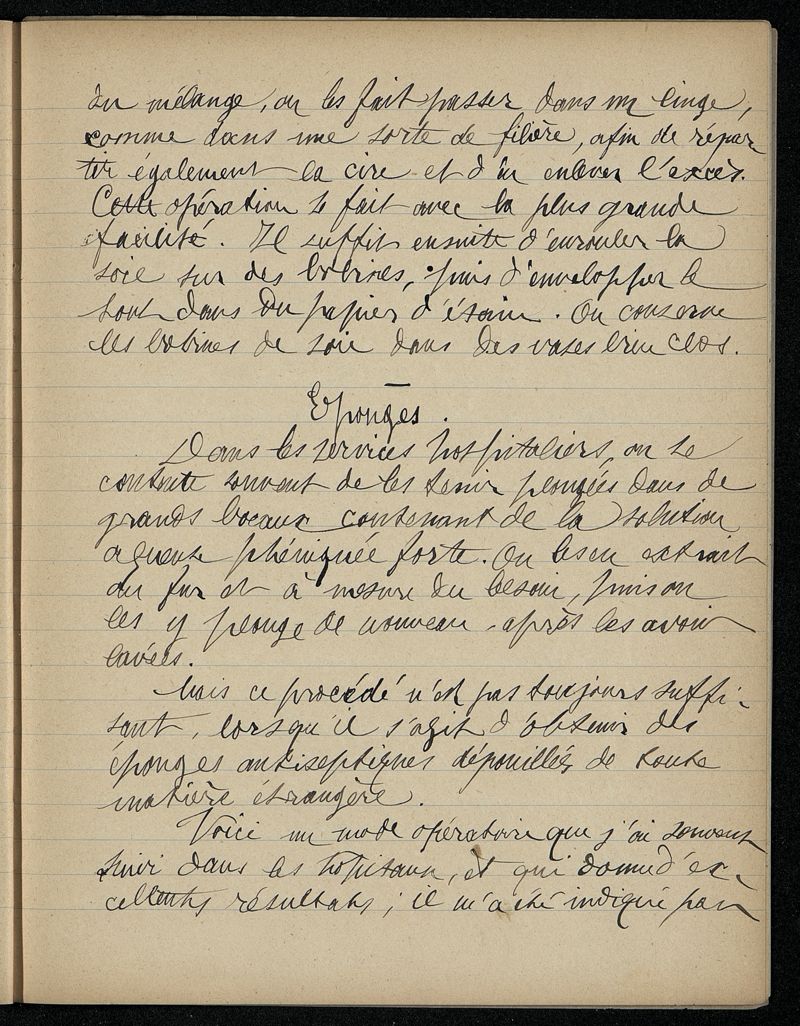 du mélange, on les fait passer dans un linge,
comme dans une sorte de filière, afin de répar
tir également la cire et d'en enlever l'excès.
Cette opération se fait avec la plus grande
facilité. Il suffit ensuite d'enrouler la
soie sur des bobines, puis d'envelopper le
tout dans du papier d'étain. On conserve
les bobines de soie dans des vases bien clos.
Eponges.
Dans les services hospitaliers, on se
contente souvent de les tenir plongées dans de
grands bocaux contenant de la solution
aqueuse phéniquée forte. On les en extrait
au fur et à mesure du besoin, puis on
les y plonge de nouveau après les avoir
lavées.
Mais ce procédé n'est pas toujours suffi-
sant, lorsqu'il s'agit d'obtenir des
éponges antiseptiques dépouillées de toute
matière etrangère.
Voici un mode opératoire que j'ai souvent
suivi dans les hôpitaux, et qui donne d'ex-
cellents résultats; il m'a été indiqué par